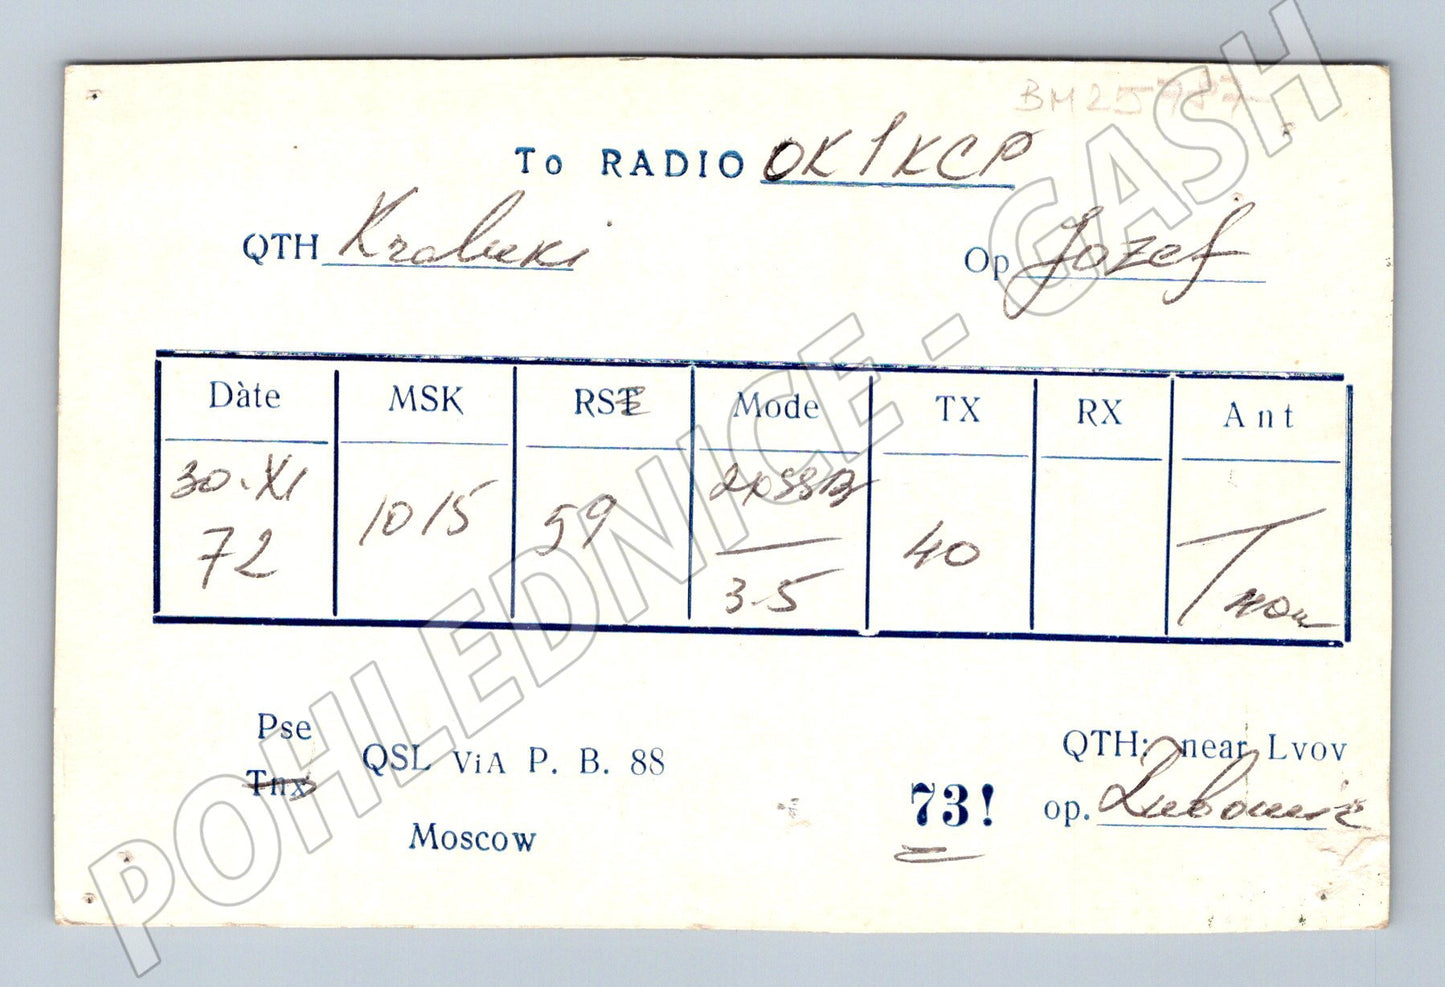 BM25787
To RADIO OK1KCP
QTH
Op Jozef
Dàte MSK RST Mode TX RX Ant
30.XI 72 1015 59 2xSSB 3.5 40 T
Pse
Tnx
QSL ViA P. B. 88
Moscow
73!
QTH: near Lvov
op. Lubomir
POHLEDNICE - GASH